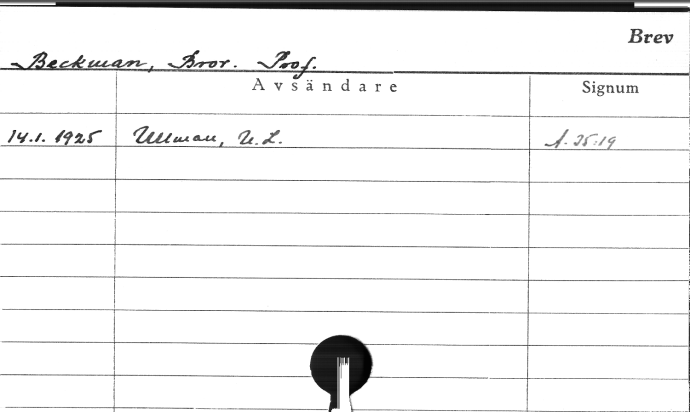 Brev
Beckman, Bror. Prof.
Avsändare Signum
14.1. 1925 Ullman, U.L. A. 25:19